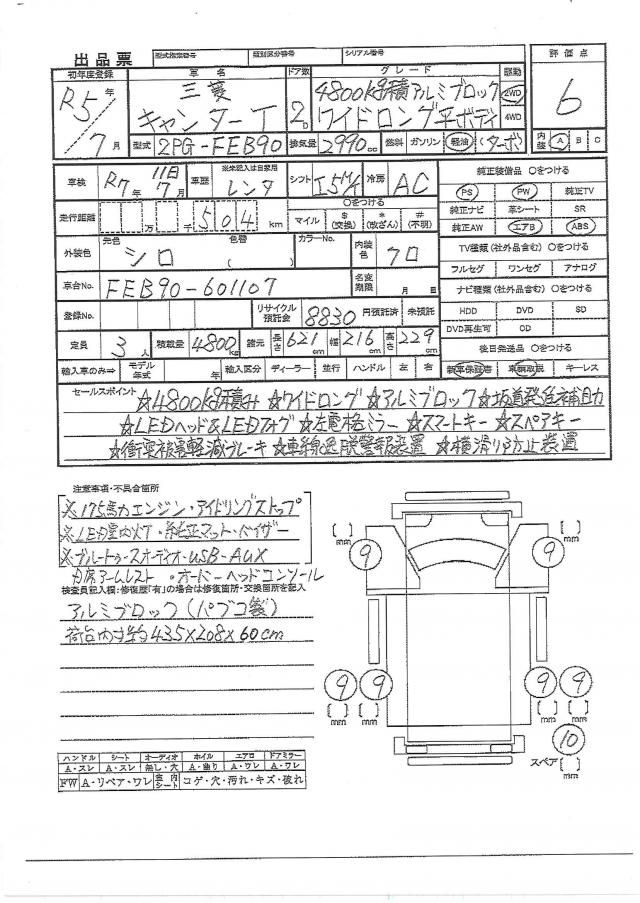 出品票 型式指定番号 類別区分番号 シリアル番号 評価点
初年度登録 車名 ドア数 グレード 駆動
R5年 三菱 4800kg積アルミブロック 2WD 6
7月 キャンター 2D ワイドロング平ボディ 4WD
型式 2PG-FEB90 排気量 2990cc 燃料 ガソリン 軽油 (ターボ) 内装 A B C
車検 R7年 11日 7月 車歴 ※未記入は自家用 レンタ シフト I5M/T 冷房 AC
純正装備品 ○をつける
PS PW 純正TV
走行距離 万 千 504 km ○をつける
マイル $(交換) *(改ざん) #(不明)
純正ナビ 革シート SR
純正AW エアB ABS
外装色 元色 シロ 色替 ( ) カラーNo. 内装色 クロ
TV種類(社外品含む) ○をつける
フルセグ ワンセグ アナログ
車台No. FEB90-601107 名変期限 月 日
ナビ種類(社外品含む) ○をつける
登録No. リサイクル預託金 8830 円預託済 未預託
HDD DVD SD
DVD再生可 CD
定員 3人 積載量 4800kg 諸元 長さ 621cm 幅 216cm 高さ 229cm
後日発送品 ○をつける
輸入車のみ⇒ モデル年式 年 輸入区分 ディーラー 並行 ハンドル 左 右
新車保証書 車輌取説 キーレス
セールスポイント ☆4800kg積み ☆ワイドロング ☆アルミブロック ☆坂道発進補助
☆LEDヘッド&LEDフォグ ☆左電格ミラー ☆スマートキー ☆スペアキー
☆衝突被害軽減ブレーキ ☆車線逸脱警報装置 ☆横滑り防止装置
注意事項・不具合箇所
※175馬力エンジン・アイドリングストップ
※LED室内灯・純正マット・バイザー
※ブルートゥースオーディオ・USB・AUX
アームレスト ・オーバーヘッドコンソール
検査員記入欄:修復歴「有」の場合は修復箇所・交換箇所を記入
アルミブロック(パブコ製)
荷台内寸約435×208×60cm
[ ]mm 9 9 [ ]mm
9 9 9 9
[ ]mm [ ]mm [ ]mm [ ]mm
10
スペア [ ]mm
ハンドル シート オーディオ ホイル エアロ ドアミラー
A・スレ A・スレ 無し・穴 A・曲り A・ワレ A・ワレ
FW A・リペア・ワレ 室内シート コゲ・穴・汚れ・キズ・破れ